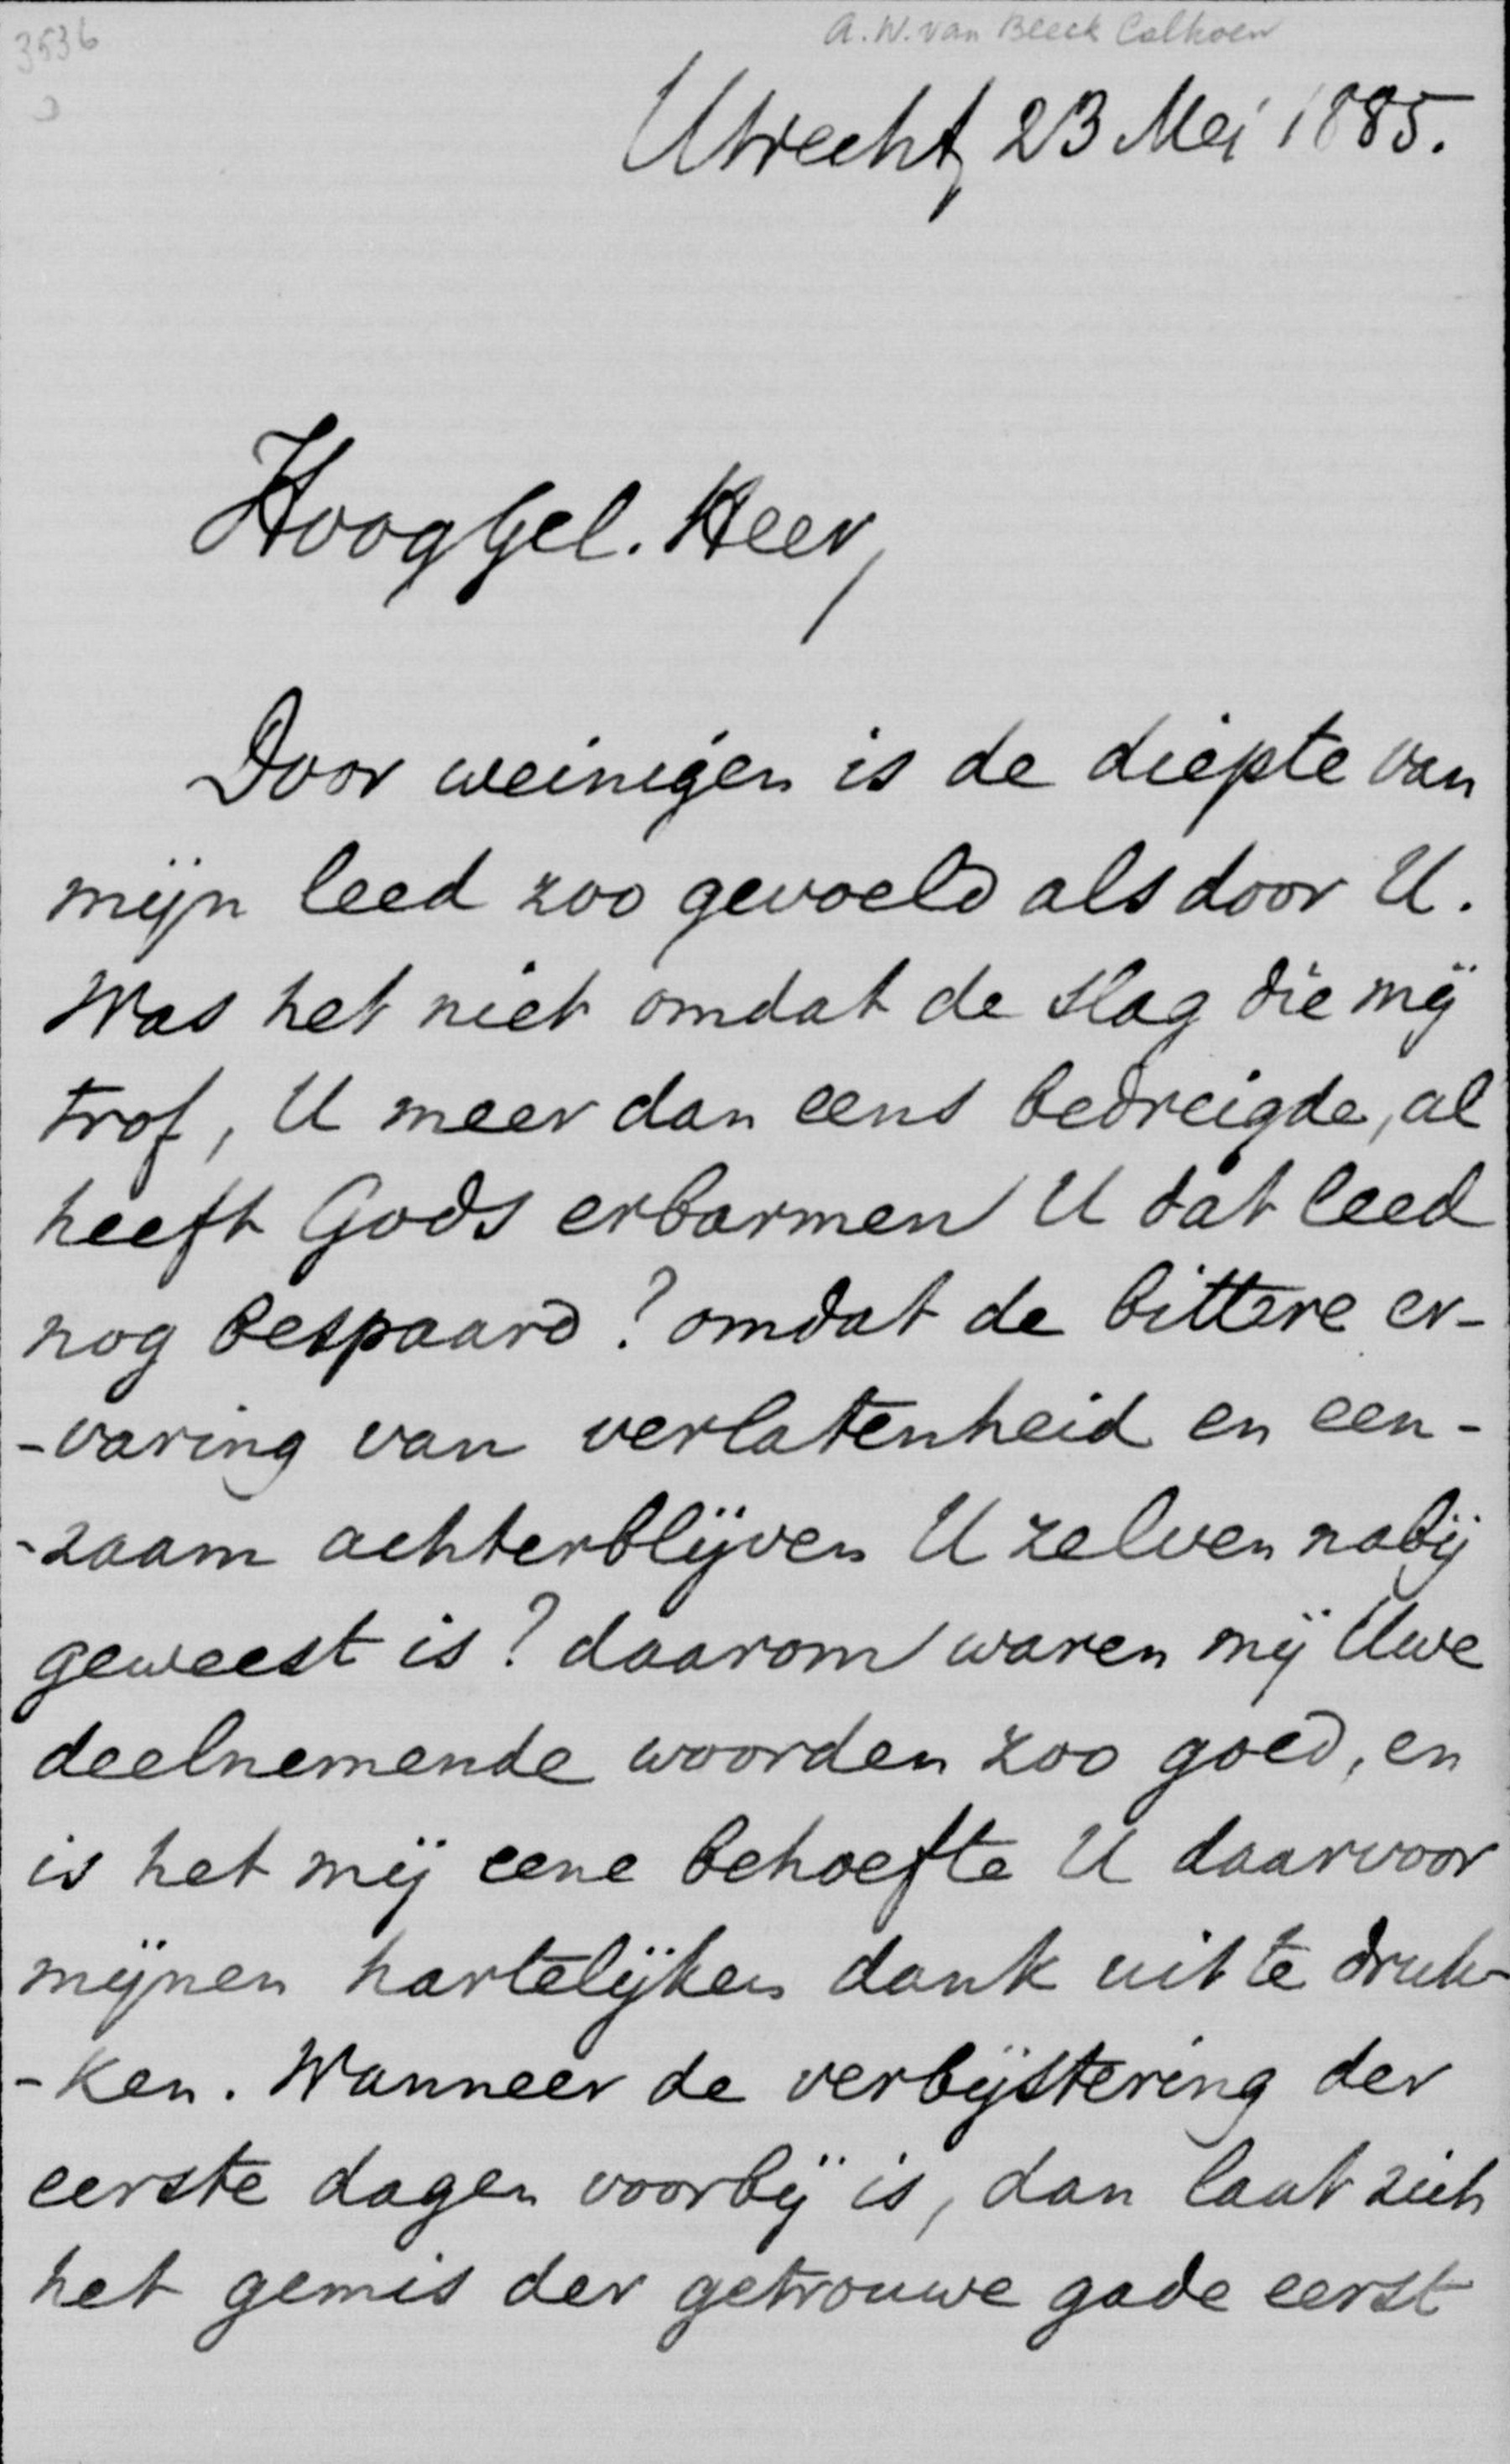 3536
A. W. van Beeck Calkoen
Utrecht, 23 Mei 1885.
HoogGel. Heer,
Door weinigen is de diepte van
mijn leed zoo gevoeld als door U.
Was het niet omdat de slag die mij
trof, U meer dan eens bedreigde, al
heeft Gods erbarmen U dat leed
nog bespaard? omdat de bittere er-
-varing van verlatenheid en een-
-zaam achterblijven U zelven nabij
geweest is? daarom waren mij Uwe
deelnemende woorden zoo goed, en
is het mij eene behoefte U daarvoor
mijnen hartelijken dank uit te druk-
-ken. Wanneer de verbijstering der
eerste dagen voorbij is, dan laat zich
het gemis der getrouwe gade eerst